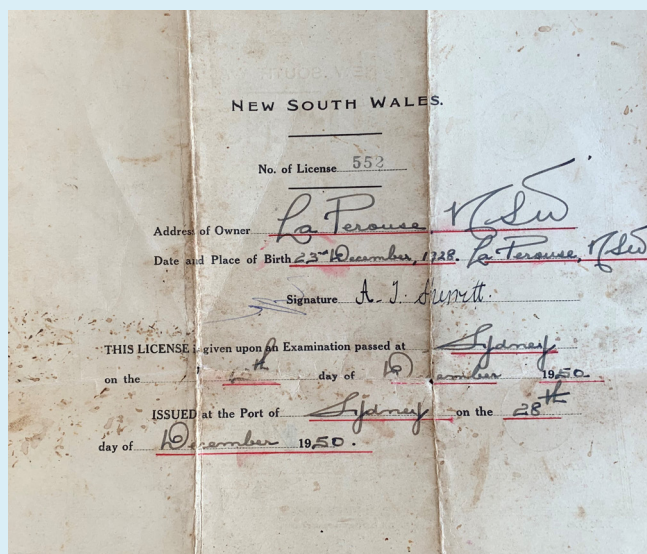 NEW SOUTH WALES.
No. of License 552
Address of Owner La Perouse NSW
Date and Place of Birth 23rd December, 1928. La Perouse, NSW
Signature A. J.
THIS LICENSE is given upon an Examination passed at Sydney
on the th day of December 1950
ISSUED at the Port of Sydney on the 28th
day of December 1950.